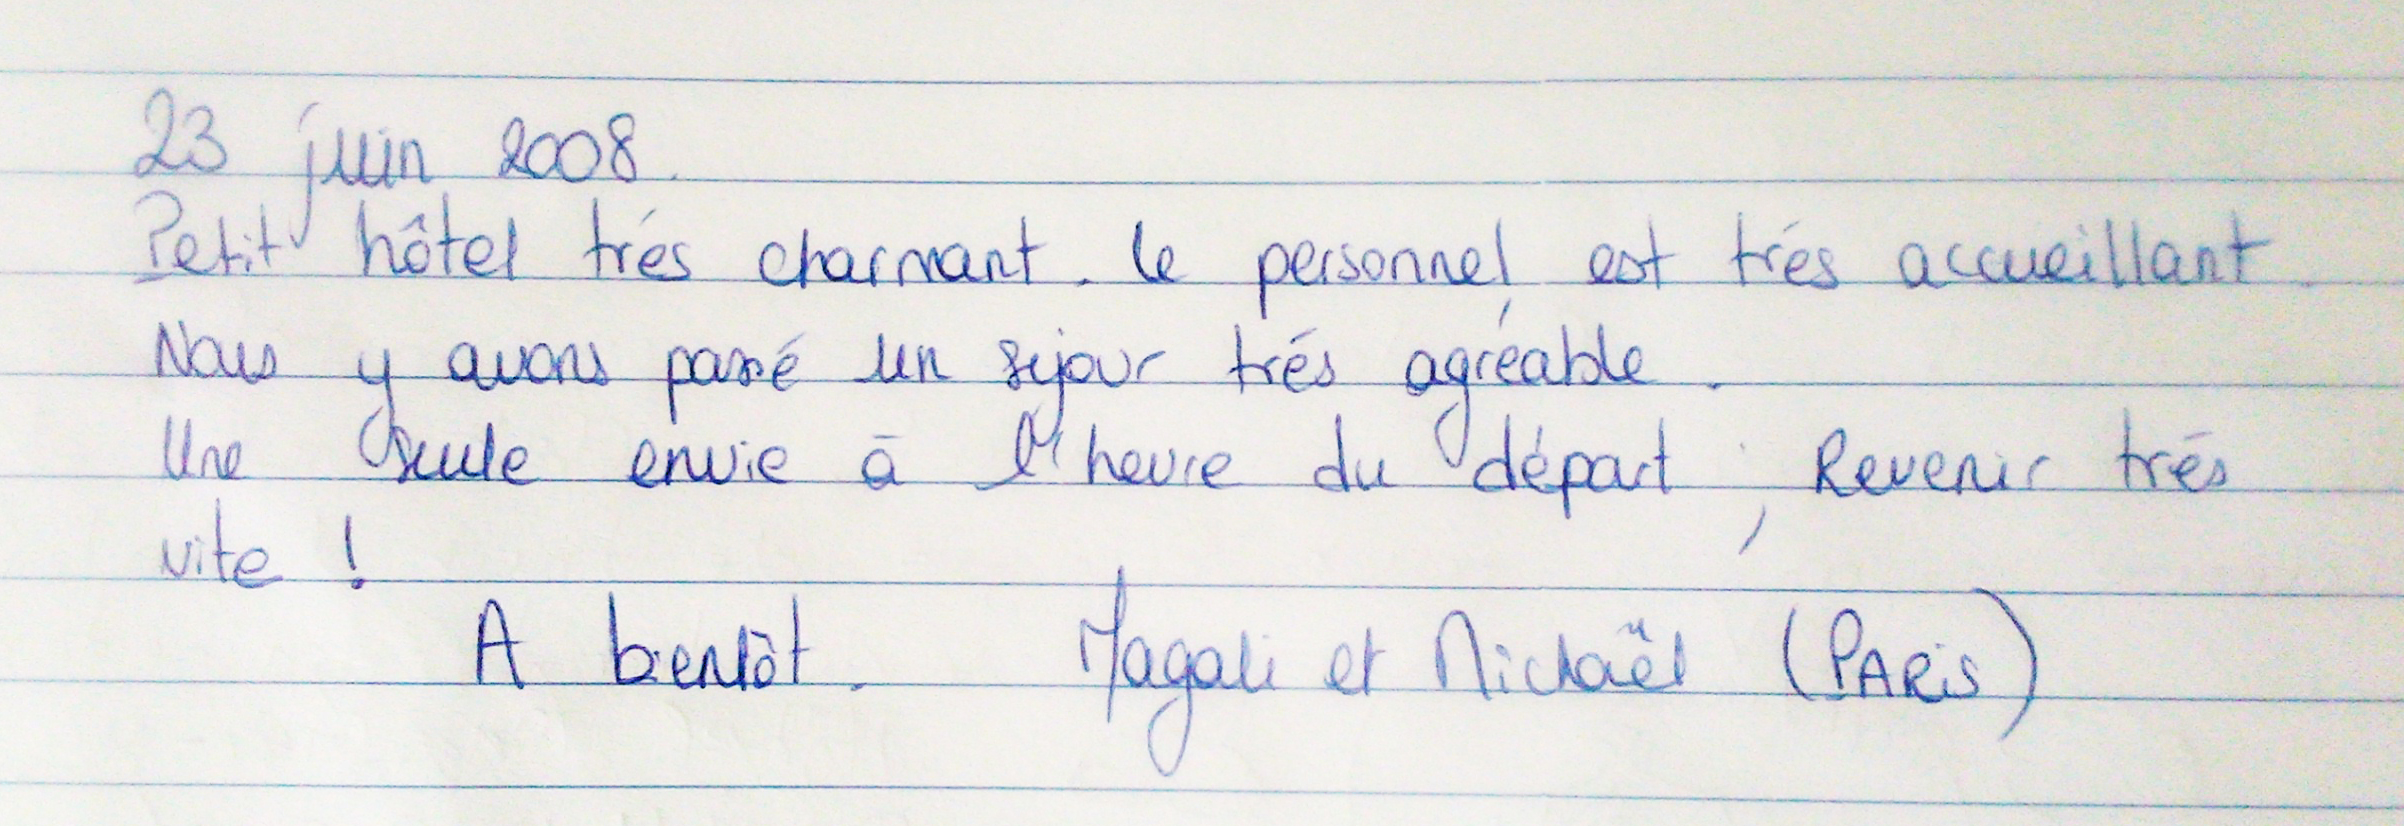 23 juin 2008.
Petit hôtel trés charmant. le personnel est trés accueillant.
Nous y avons passé un sejour trés agréable.
Une seule envie à l'heure du départ ; Revenir trés
vite !
A bientôt. Magali et Mickaël (PARiS)